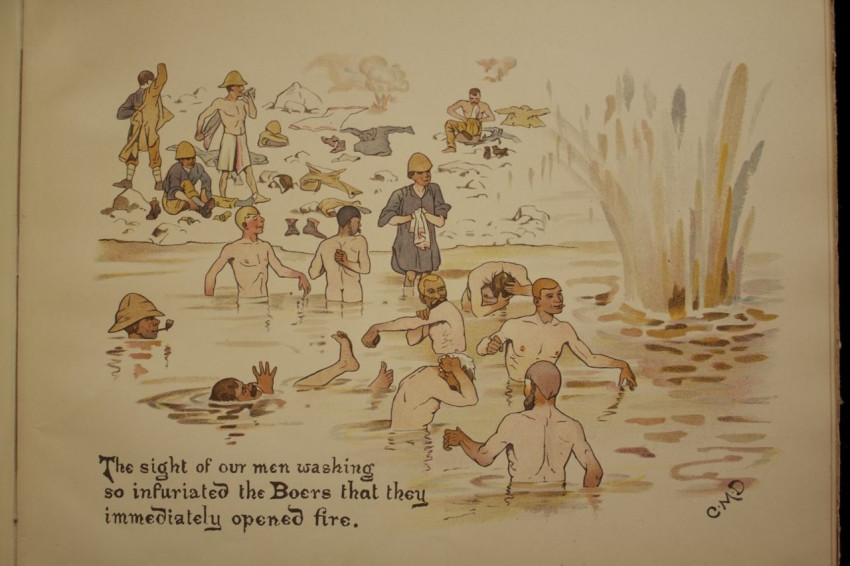 The sight of our men washing
so infuriated the Boers that they
immediately opened fire.
C.M.D